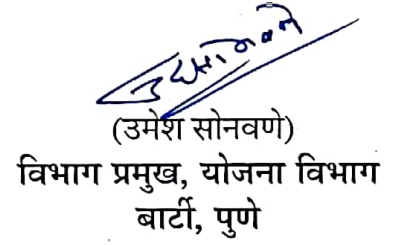 (उमेश सोनवणे)
विभाग प्रमुख, योजना विभाग
बार्टी, पुणे